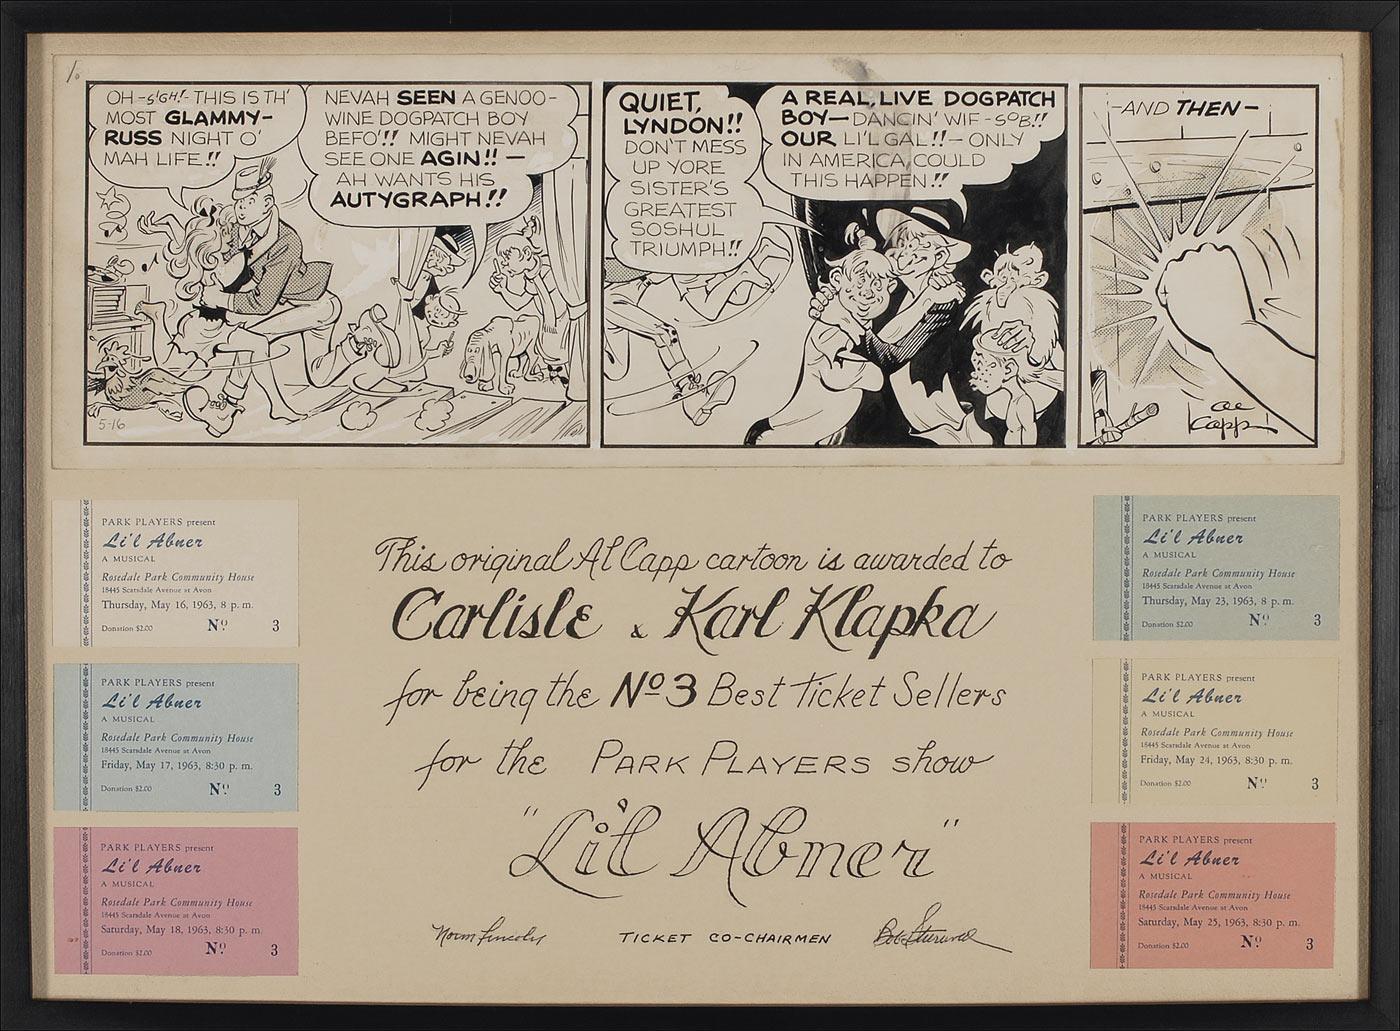 OH -SIGH!- THIS IS TH'
MOST GLAMMY-
RUSS NIGHT O'
MAH LIFE!!
NEVAH SEEN A GENOO-
WINE DOGPATCH BOY
BEFO'!! MIGHT NEVAH
SEE ONE AGIN!! —
AH WANTS HIS
AUTYGRAPH!!
5-16
QUIET,
LYNDON!!
DON'T MESS
UP YORE
SISTER'S
GREATEST
SOSHUL
TRIUMPH!!
A REAL, LIVE DOGPATCH
BOY— DANCIN' WIF -SOB!!
OUR LI'L GAL!!— ONLY
IN AMERICA, COULD
THIS HAPPEN!!
—AND THEN—
AL
CAPP
PARK PLAYERS present
Li'l Abner
A MUSICAL
Rosedale Park Community House
18445 Scarsdale Avenue at Avon
Thursday, May 16, 1963, 8 p. m.
Donation $2.00 No 3
PARK PLAYERS present
Li'l Abner
A MUSICAL
Rosedale Park Community House
18445 Scarsdale Avenue at Avon
Friday, May 17, 1963, 8:30 p. m.
Donation $2.00 No 3
PARK PLAYERS present
Li'l Abner
A MUSICAL
Rosedale Park Community House
18445 Scarsdale Avenue at Avon
Saturday, May 18, 1963, 8:30 p. m.
Donation $2.00 No 3
This original Al Capp cartoon is awarded to
Carlisle & Karl Klapka
for being the No 3 Best Ticket Sellers
for the PARK PLAYERS show
"Li'l Abner"
Norm Lincoln TICKET CO-CHAIRMEN Bob
PARK PLAYERS present
Li'l Abner
A MUSICAL
Rosedale Park Community House
18445 Scarsdale Avenue at Avon
Thursday, May 23, 1963, 8 p. m.
Donation $2.00 No 3
PARK PLAYERS present
Li'l Abner
A MUSICAL
Rosedale Park Community House
18445 Scarsdale Avenue at Avon
Friday, May 24, 1963, 8:30 p. m.
Donation $2.00 No 3
PARK PLAYERS present
Li'l Abner
A MUSICAL
Rosedale Park Community House
18445 Scarsdale Avenue at Avon
Saturday, May 25, 1963, 8:30 p. m.
Donation $2.00 No 3